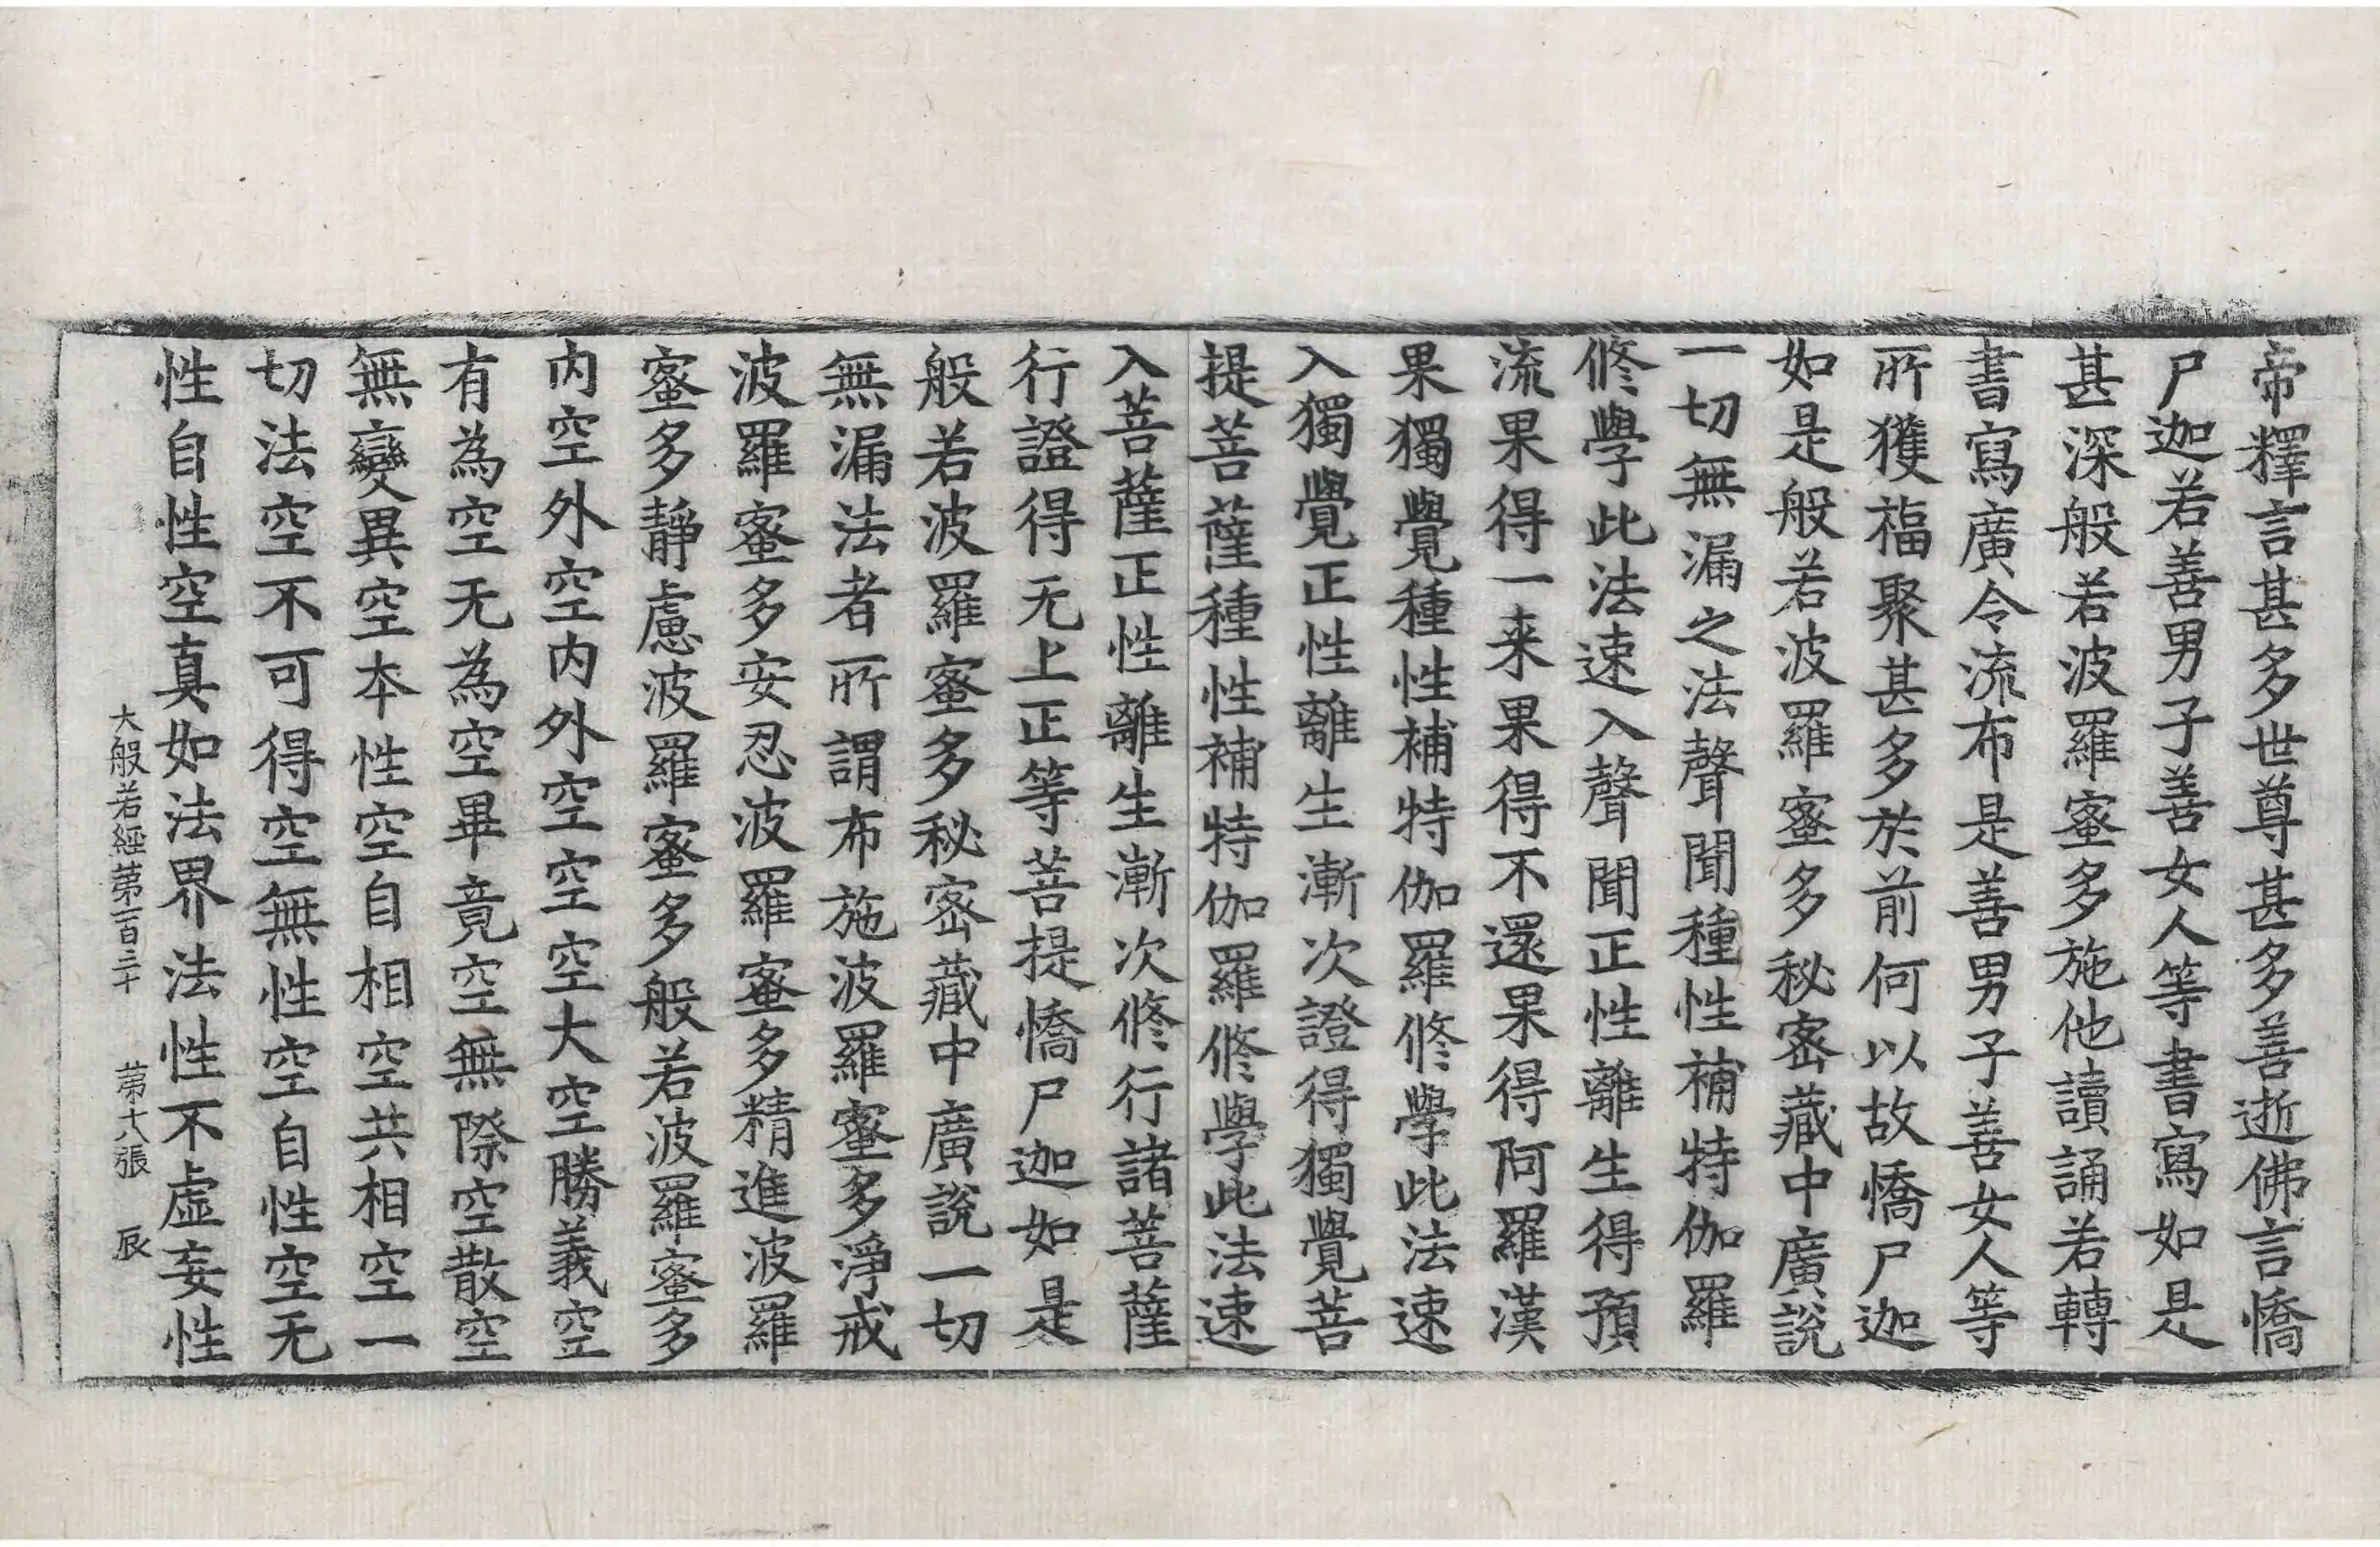 帝釋言甚多世尊甚多善逝佛言憍
尸迦若善男子善女人等書寫如是
甚深般若波羅蜜多施他讀誦若轉
書寫廣令流布是善男子善女人等
所獲福聚甚多於前何以故憍尸迦
如是般若波羅蜜多秘密藏中廣說
一切無漏之法聲聞種性補特伽羅
修學此法速入聲聞正性離生得預
流果得一来果得不還果得阿羅漢
果獨覺種性補特伽羅修學此法速
入獨覺正性離生漸次證得獨覺菩
提菩薩種性補特伽羅修學此法速
入菩薩正性離生漸次修行諸菩薩
行證得无上正等菩提憍尸迦如是
般若波羅蜜多秘密藏中廣說一切
無漏法者所謂布施波羅蜜多淨戒
波羅蜜多安忍波羅蜜多精進波羅
蜜多靜慮波羅蜜多般若波羅蜜多
内空外空内外空空空大空勝義空
有為空无為空畢竟空無際空散空
無變異空本性空自相空共相空一
切法空不可得空無性空自性空无
性自性空真如法界法性不虛妄性
大般若經第一百三十 第十八張 辰